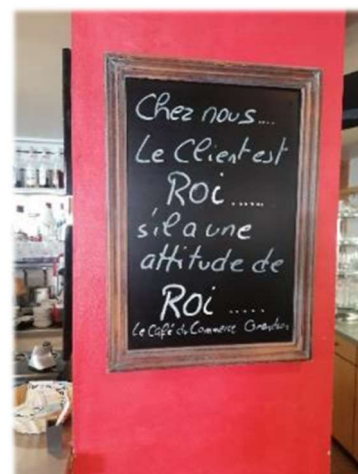 Chez nous....
Le Client est
Roi......
s'il a une
attitude de
Roi .....
Le Café du Commerce Grandson